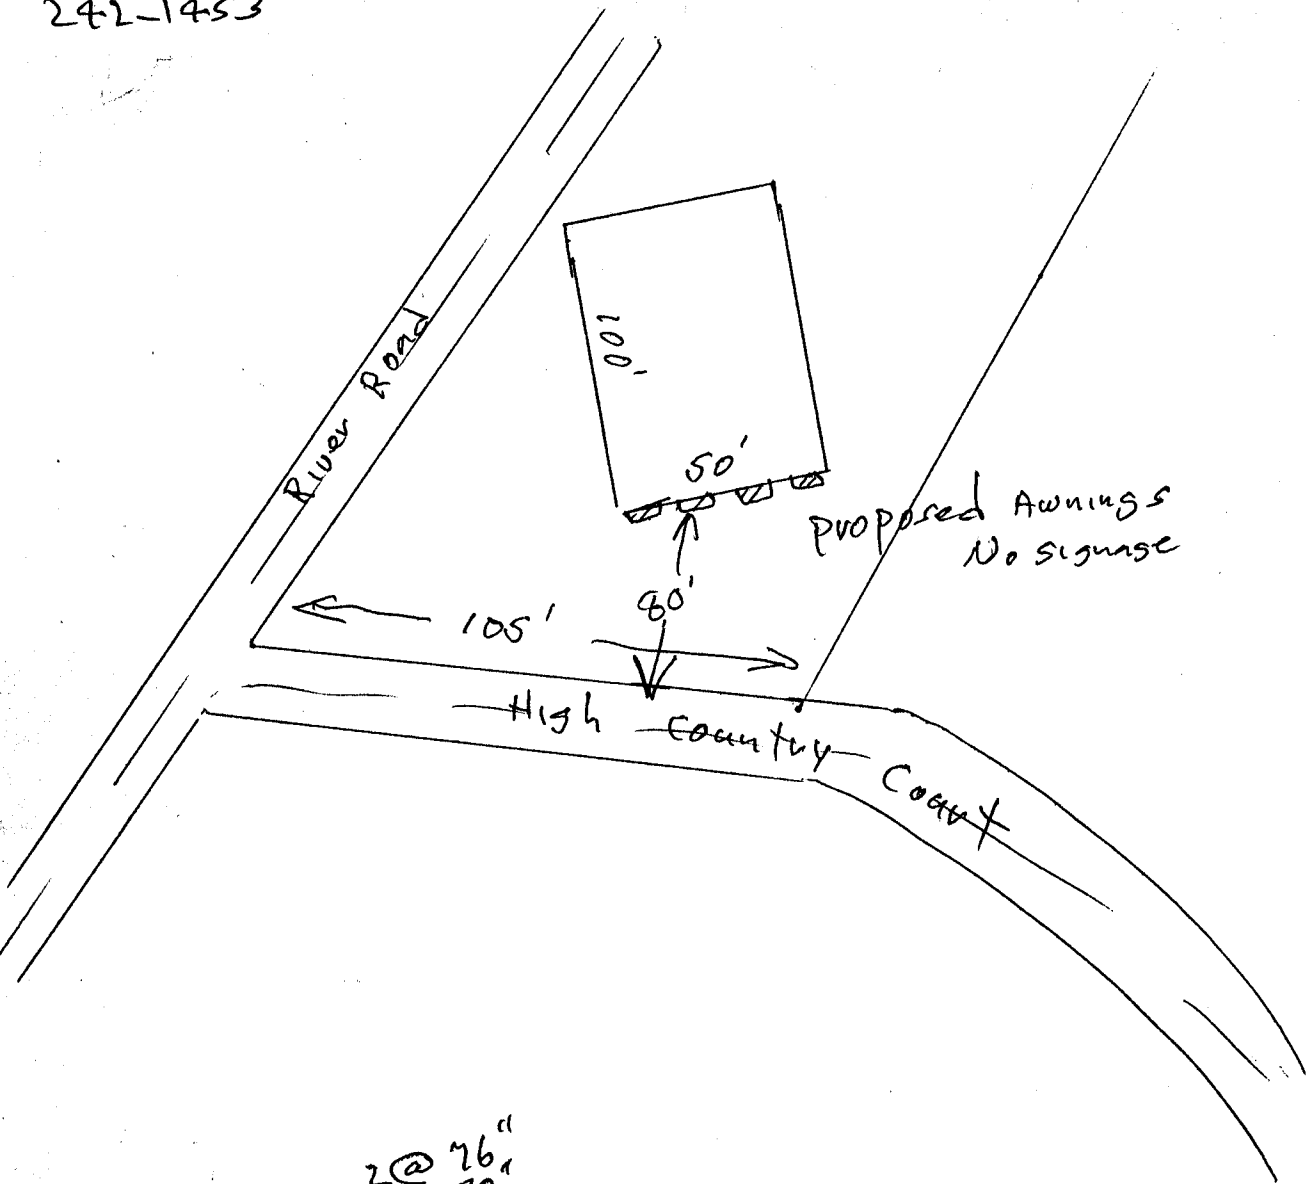 242-1453
River Road
100'
50'
Proposed Awnings
No signage
80'
105'
High Country Court
2@ 76"